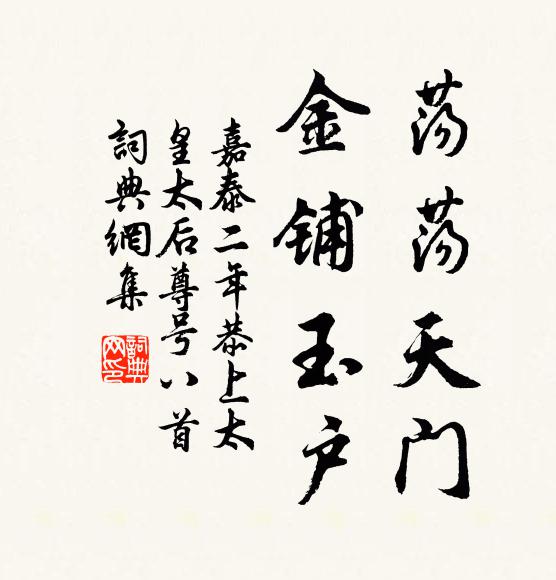 荡荡天门
金铺玉户
嘉泰二年恭上太
皇太后尊号八首
词典網集
詞典
网印